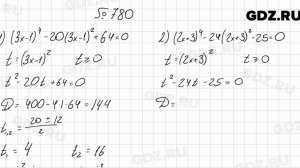 GDZ.RU
№ 780
1) (3x-1)⁴-20(3x-1)²+64=0
t=(3x-1)² t≥0
t²-20t+64=0
D=400-4·1·64=144
t₁,₂=(20±12)/2
t₁=4 t₂=16
2) (2x+3)⁴-24(2x+3)²-25=0
t=(2x+3)² t≥0
t²-24t-25=0
D=
GDZ.RU